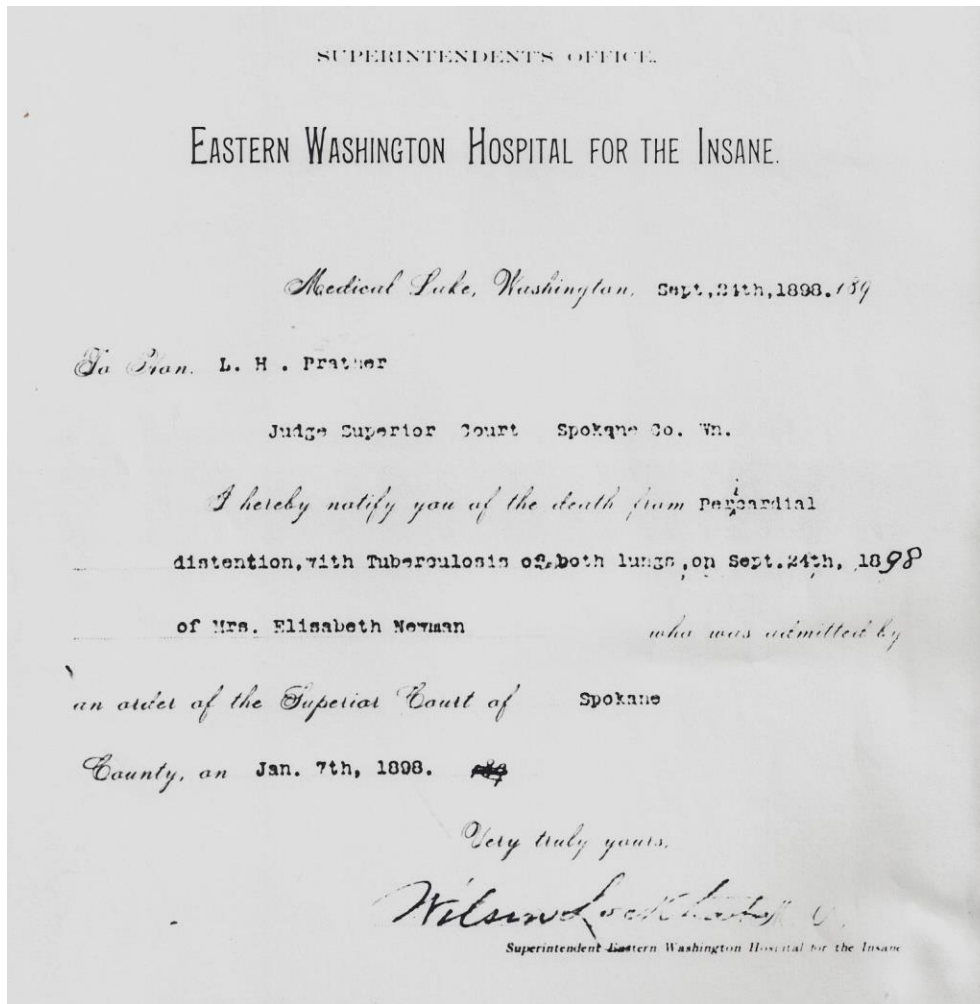 SUPERINTENDENT'S OFFICE.
EASTERN WASHINGTON HOSPITAL FOR THE INSANE.
Medical Lake, Washington, Sept,24th,1898. 189
To Hon. L. H . Prather
Judge Superior Court Spokane Co. Wn.
I hereby notify you of the death from Pericardial
distention,with Tuberculosis of both lungs,on Sept.24th, 1898
of Mrs. Elisabeth Newman who was admitted by
an order of the Superior Court of Spokane
County, on Jan. 7th, 1898.
Very truly yours,
Wilson
Superintendent Eastern Washington Hospital for the Insane